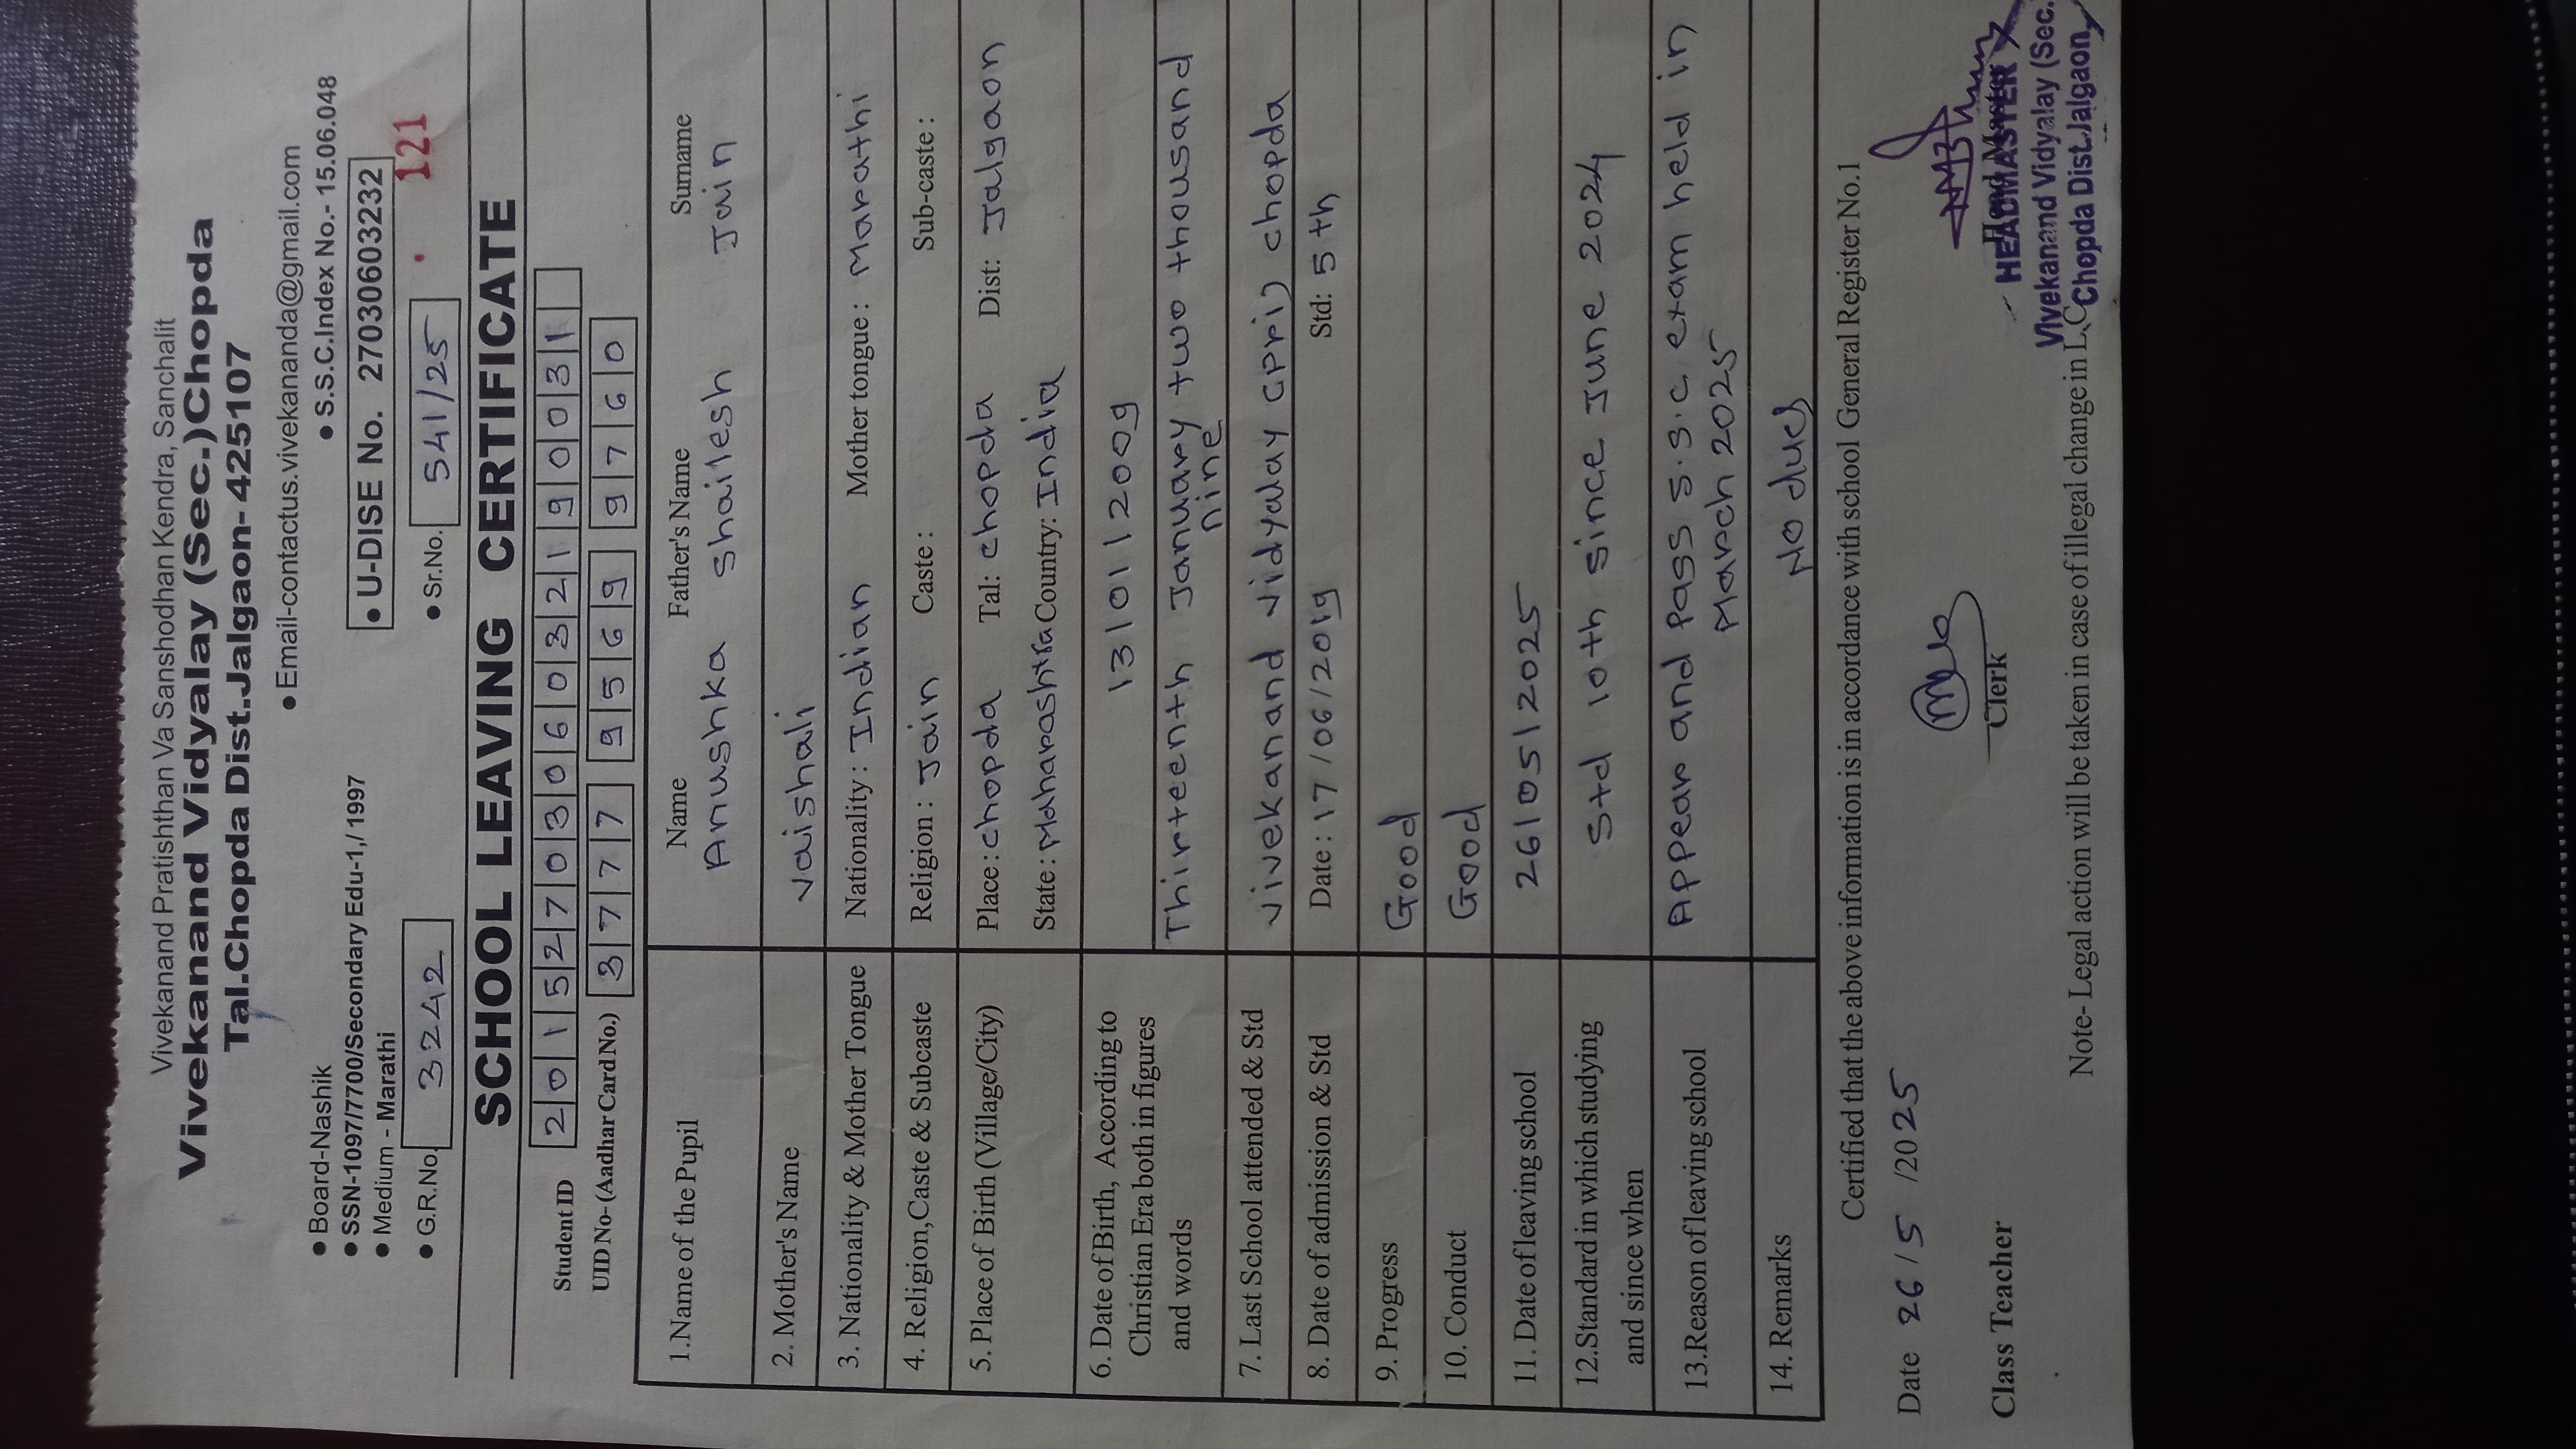 Vivekanand Pratishthan Va Sanshodhan Kendra, Sanchalit
Vivekanand Vidyalay (Sec.) Chopda
Tal.Chopda Dist.Jalgaon-425107
● Email-contactus.vivekananda@gmail.com
● Board-Nashik ● S.S.C.Index No.- 15.06.048
● SSN-1097/7700/Secondary Edu-1,/1997
● Medium - Marathi ● U-DISE No. 27030603232
● G.R.No. 3242 ● Sr.No. 541/25 121
SCHOOL LEAVING CERTIFICATE
Student ID 2015270306032190031
UID No- (Aadhar Card No.) 3777 9569 9760
1.Name of the Pupil Name Father's Name Surname
Anushka Shailesh Jain
2. Mother's Name Vaishali
3. Nationality & Mother Tongue Nationality : Indian Mother tongue : Marathi
4. Religion,Caste & Subcaste Religion : Jain Caste : Sub-caste :
5. Place of Birth (Village/City) Place : chopda Tal: chopda Dist: Jalgaon
State : Maharashtra Country: India
6. Date of Birth, According to 13/01/2009
Christian Era both in figures
and words Thirteenth January two thousand
nine
7. Last School attended & Std Vivekanand vidyalay (pri) chopda
8. Date of admission & Std Date : 17/06/2019 Std: 5th
9. Progress Good
10. Conduct Good
11. Date of leaving school 26/05/2025
12.Standard in which studying Std 10th since June 2024
and since when
13.Reason of leaving school Appear and Pass S.S.C. exam held in
March 2025
14. Remarks No dues
Certified that the above information is in accordance with school General Register No.1
Date 26/5/2025
Class Teacher Clerk Head Master
HEADMASTER
Vivekanand Vidyalay (Sec.
Chopda Dist.Jalgaon
Note- Legal action will be taken in case of illegal change in L.C.